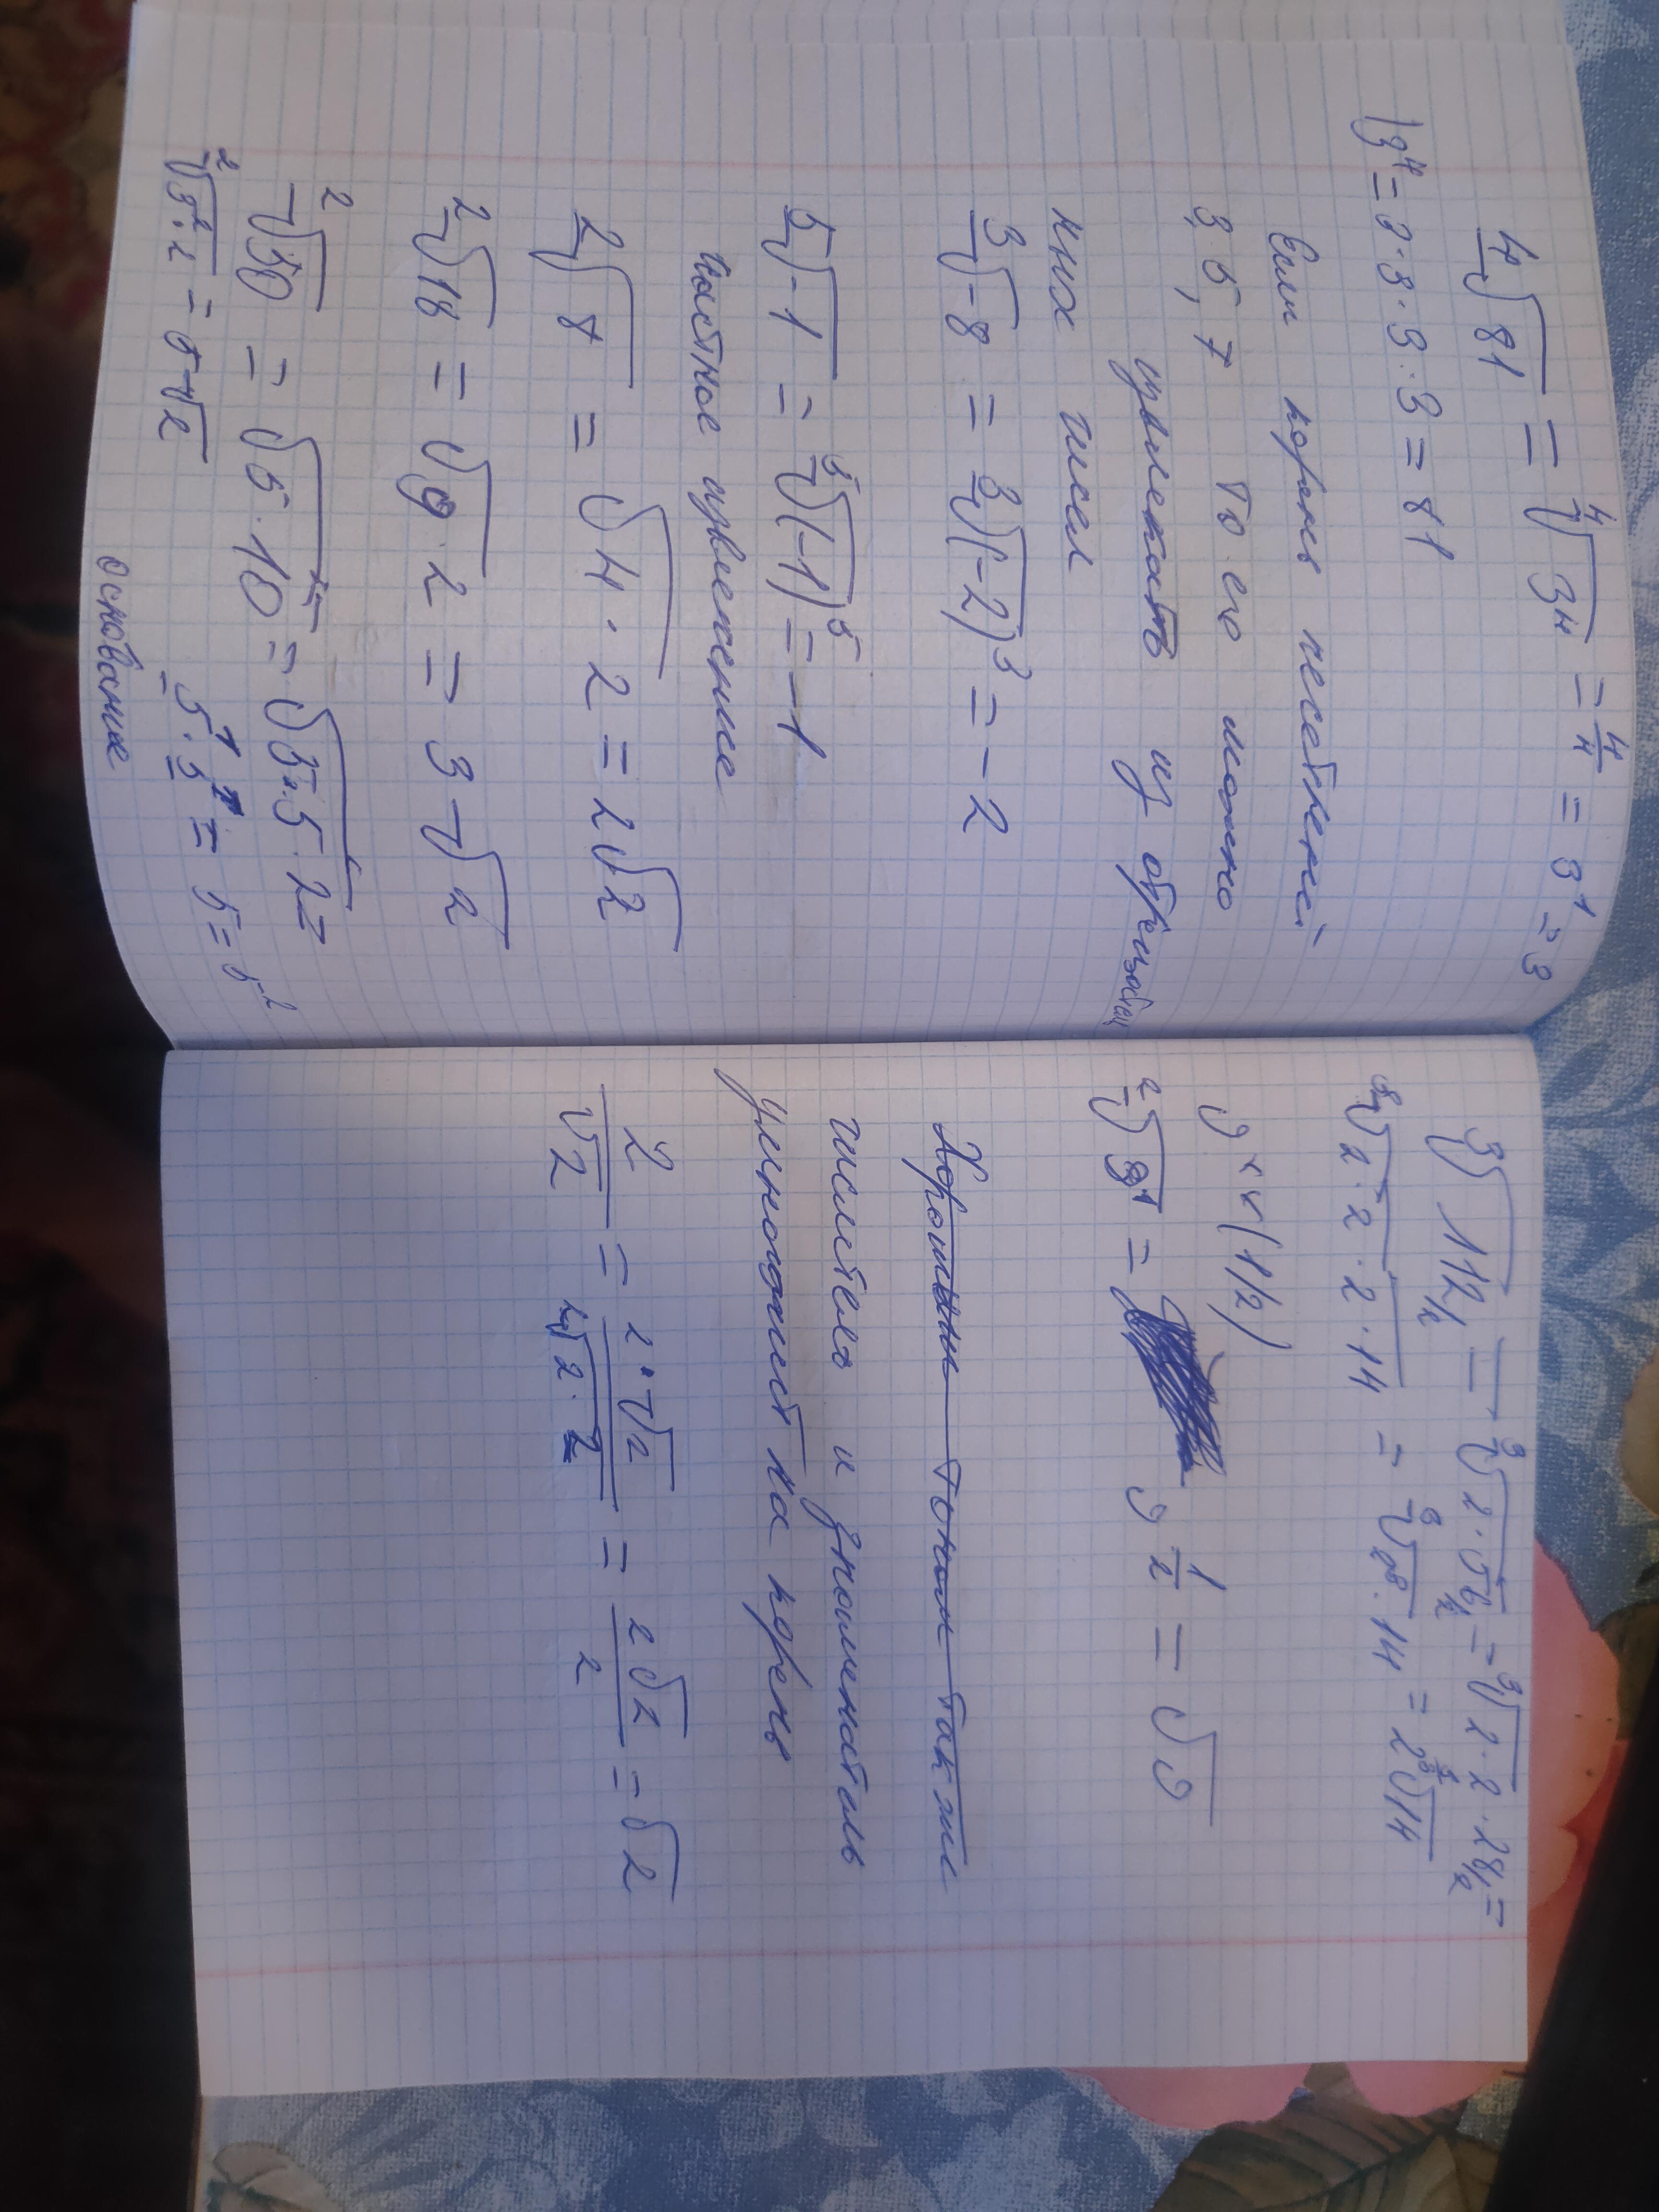 ⁴√81 = ⁴√3⁴ = 4/4 = 3¹ = 3
3⁴ = 3·3·3·3 = 81
Если корень нечетный
3, 5, 7 то его можно
извлекать из
ных чисел
³√-8 = ³√(-2)³ = -2
⁵√-1 = ⁵√(-1)⁵ = -1
Частное извлечение
²√8 = √4·2 = 2√2
²√18 = √9·2 = 3√2
²√50 = √5·10 = √5·5·2 =
²√5²·2 = 5√2
5¹·5¹ = 5 = 5²
основание
³√112 = ³√2·56 = ³√2·2·28 =
³√2·2·2·14 = ³√2³·14 = 2³√14
9^(1/2)
²√9¹ = 9^1/2 = √9
Хорошим тоном так же
числитель и знаменатель
умножают на корень
2/√2 = 2·√2/√2·2 = 2√2/2 = √2